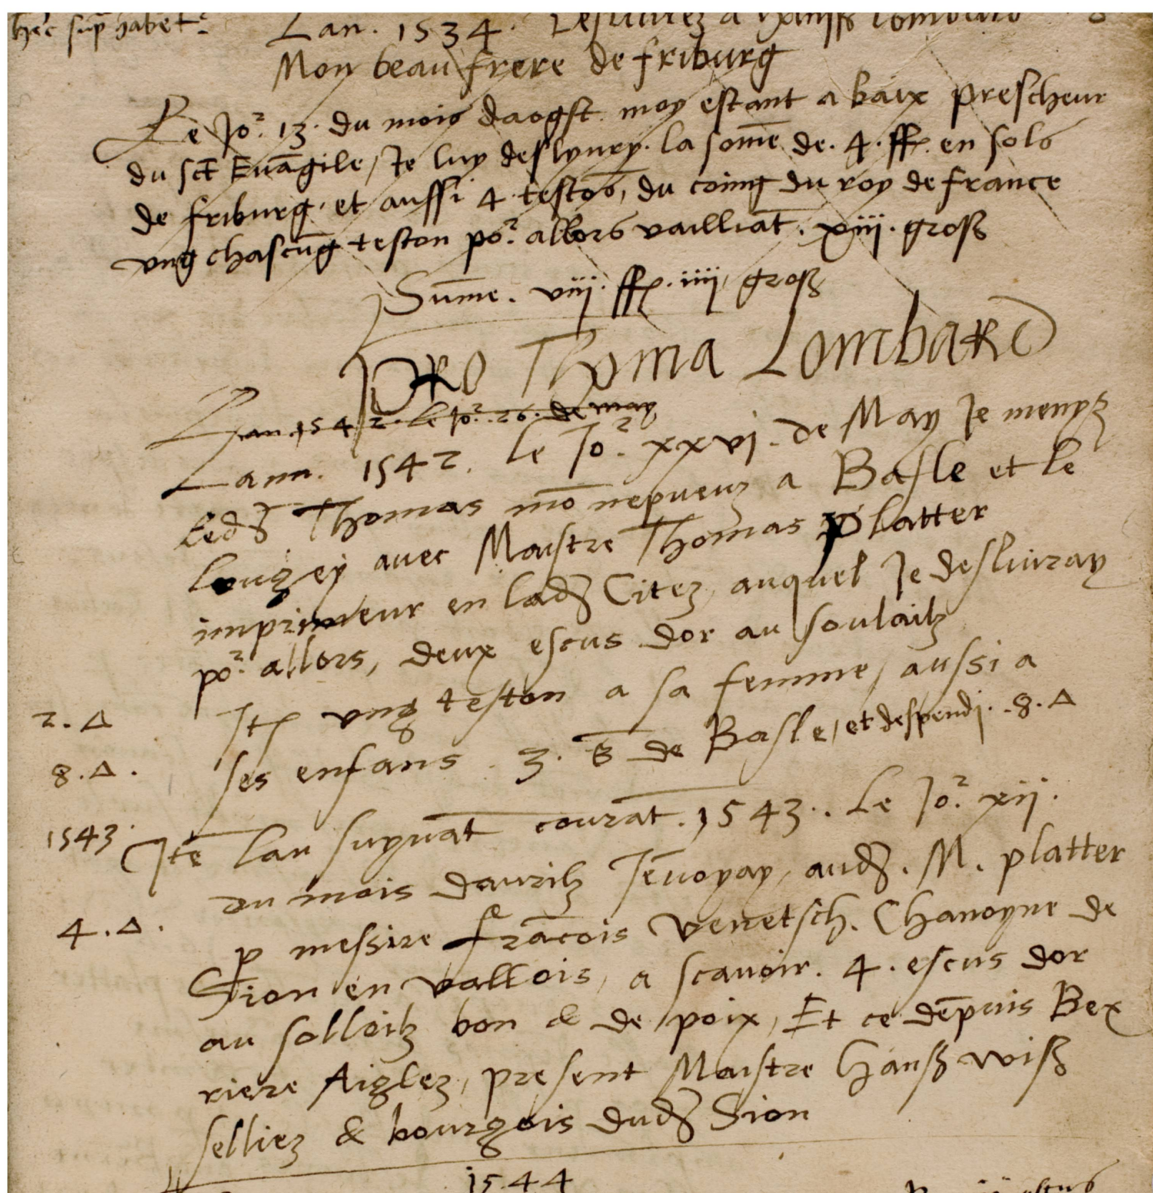 Lan. 1534. Deslivrez a Hanss Lombard
Mon beau frere de friburg
Le Jor. 13. du mois daogst moy estant a baix prescheur
du sct Evāgile, Je luy deslyvry. la some de. 4. ff. en sols
de friburg, et aussi 4 testos, du coing du roy de france
ung chascūg teston por. allors vailliāt. xiii. groß
Sume. viii. ff. iiii, groß
PRO Thoma Lombard
Lan 1542. Le Jor. 26. de may
Lann. 1542. Le Jor. xxvi. de May Je menyz
led. Thomas mō nepveuz a Basle et le
avec Maistre Thomas platter
imprimeur en lad. Citez, auquel Je deslivray
por. allors, deux escus dor au soulailz
2. Δ Itē ung teston a sa femme, aussi a
8. Δ. ses enfans. 3. ß de Basle, et despendi. 8. Δ
1543. Itē lan suyvāt courāt. 1543. Le Jor. xii.
du mois davrilz Jēvoyay, aud. M. platter
4. Δ. p messire Frācois Venetsch. Chanoyne de
Sion en vallois, a scavoir. 4. escus dor
au solloilz bon & de poix, Et ce dēpuis Bex
riere Aiglez, present Maistre Hanß wiß
selliez & bourgois dud. Sion
1544